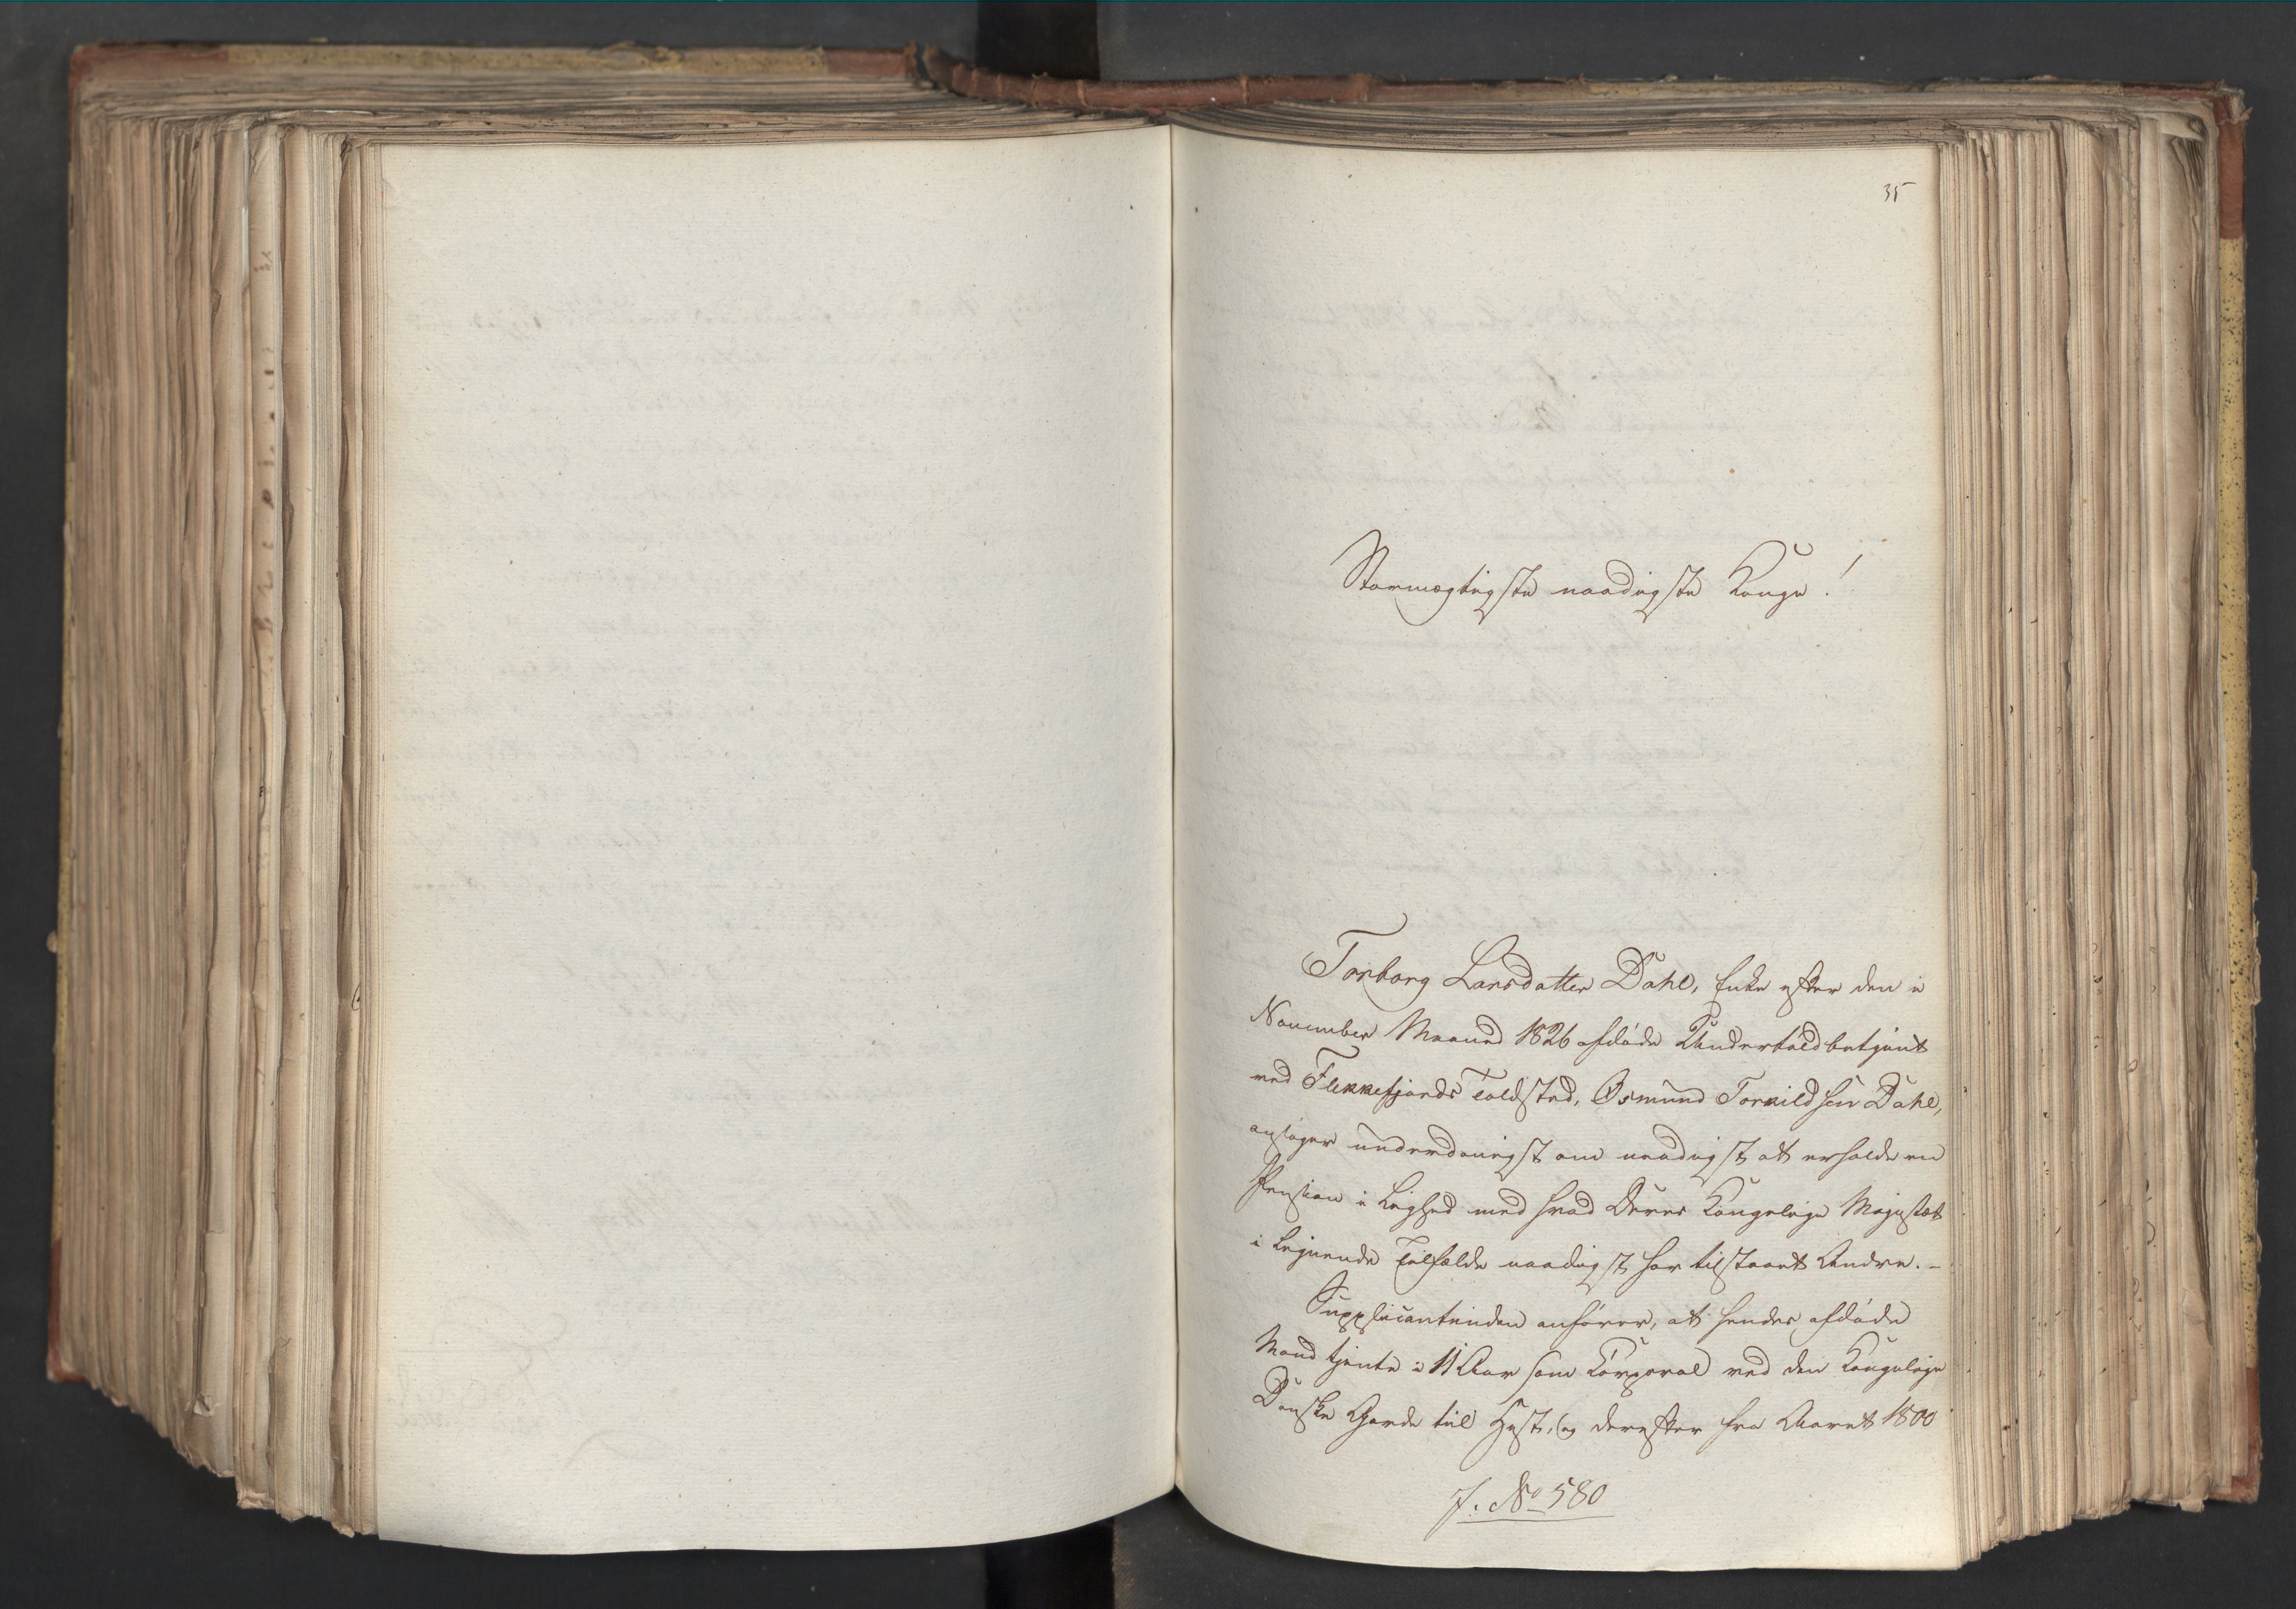 35
Stormægtigste naadigste Konge!
Torborg Larsdatter Dahl, Enke efter den i
November Maaned 1826 afdøde Undertoldbetjent
ved Flekkefjords Toldsted, Osmund Torkildsen Dahl,
ansøger underdanigst om naadigst at erholde en
Pension i Liighed med hvad Deres Kongelige Majestæt
i lignende Tilfælde naadigst har tilstaaet Andre. -
Supplicantinden anfører, at hendes afdøde
Mand tjente i 11 Aar som Corporal ved den Kongelige
Danske Garde til Hest, og derefter fra Aaret 1800
J. No 580